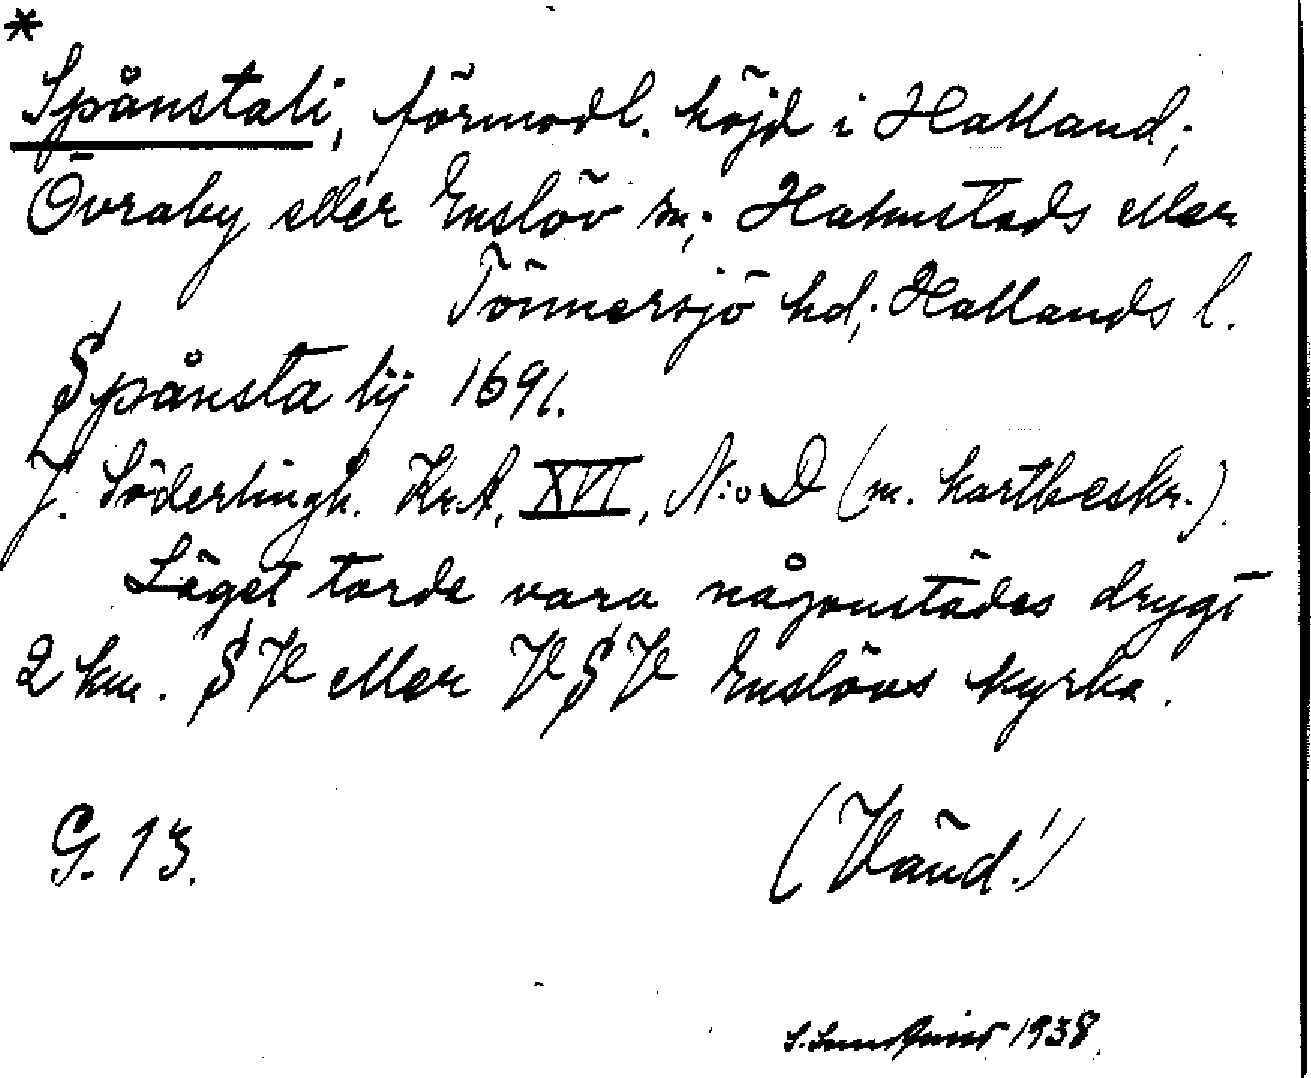 *
Spånstali, förmodl. höjd i Halland;
Övraby eller Enslöv sn; Halmstads eller
Tönnersjö hd; Hallands l.
Spånsta lij 1691.
J. Söderlingh. Kr.A, XVI, N:o D (m. kartbeskr.).
Läget torde vara någonstädes drygt
2 km. SV eller VSV Enslövs kyrka.
G. 13.
(Vänd!)
1938